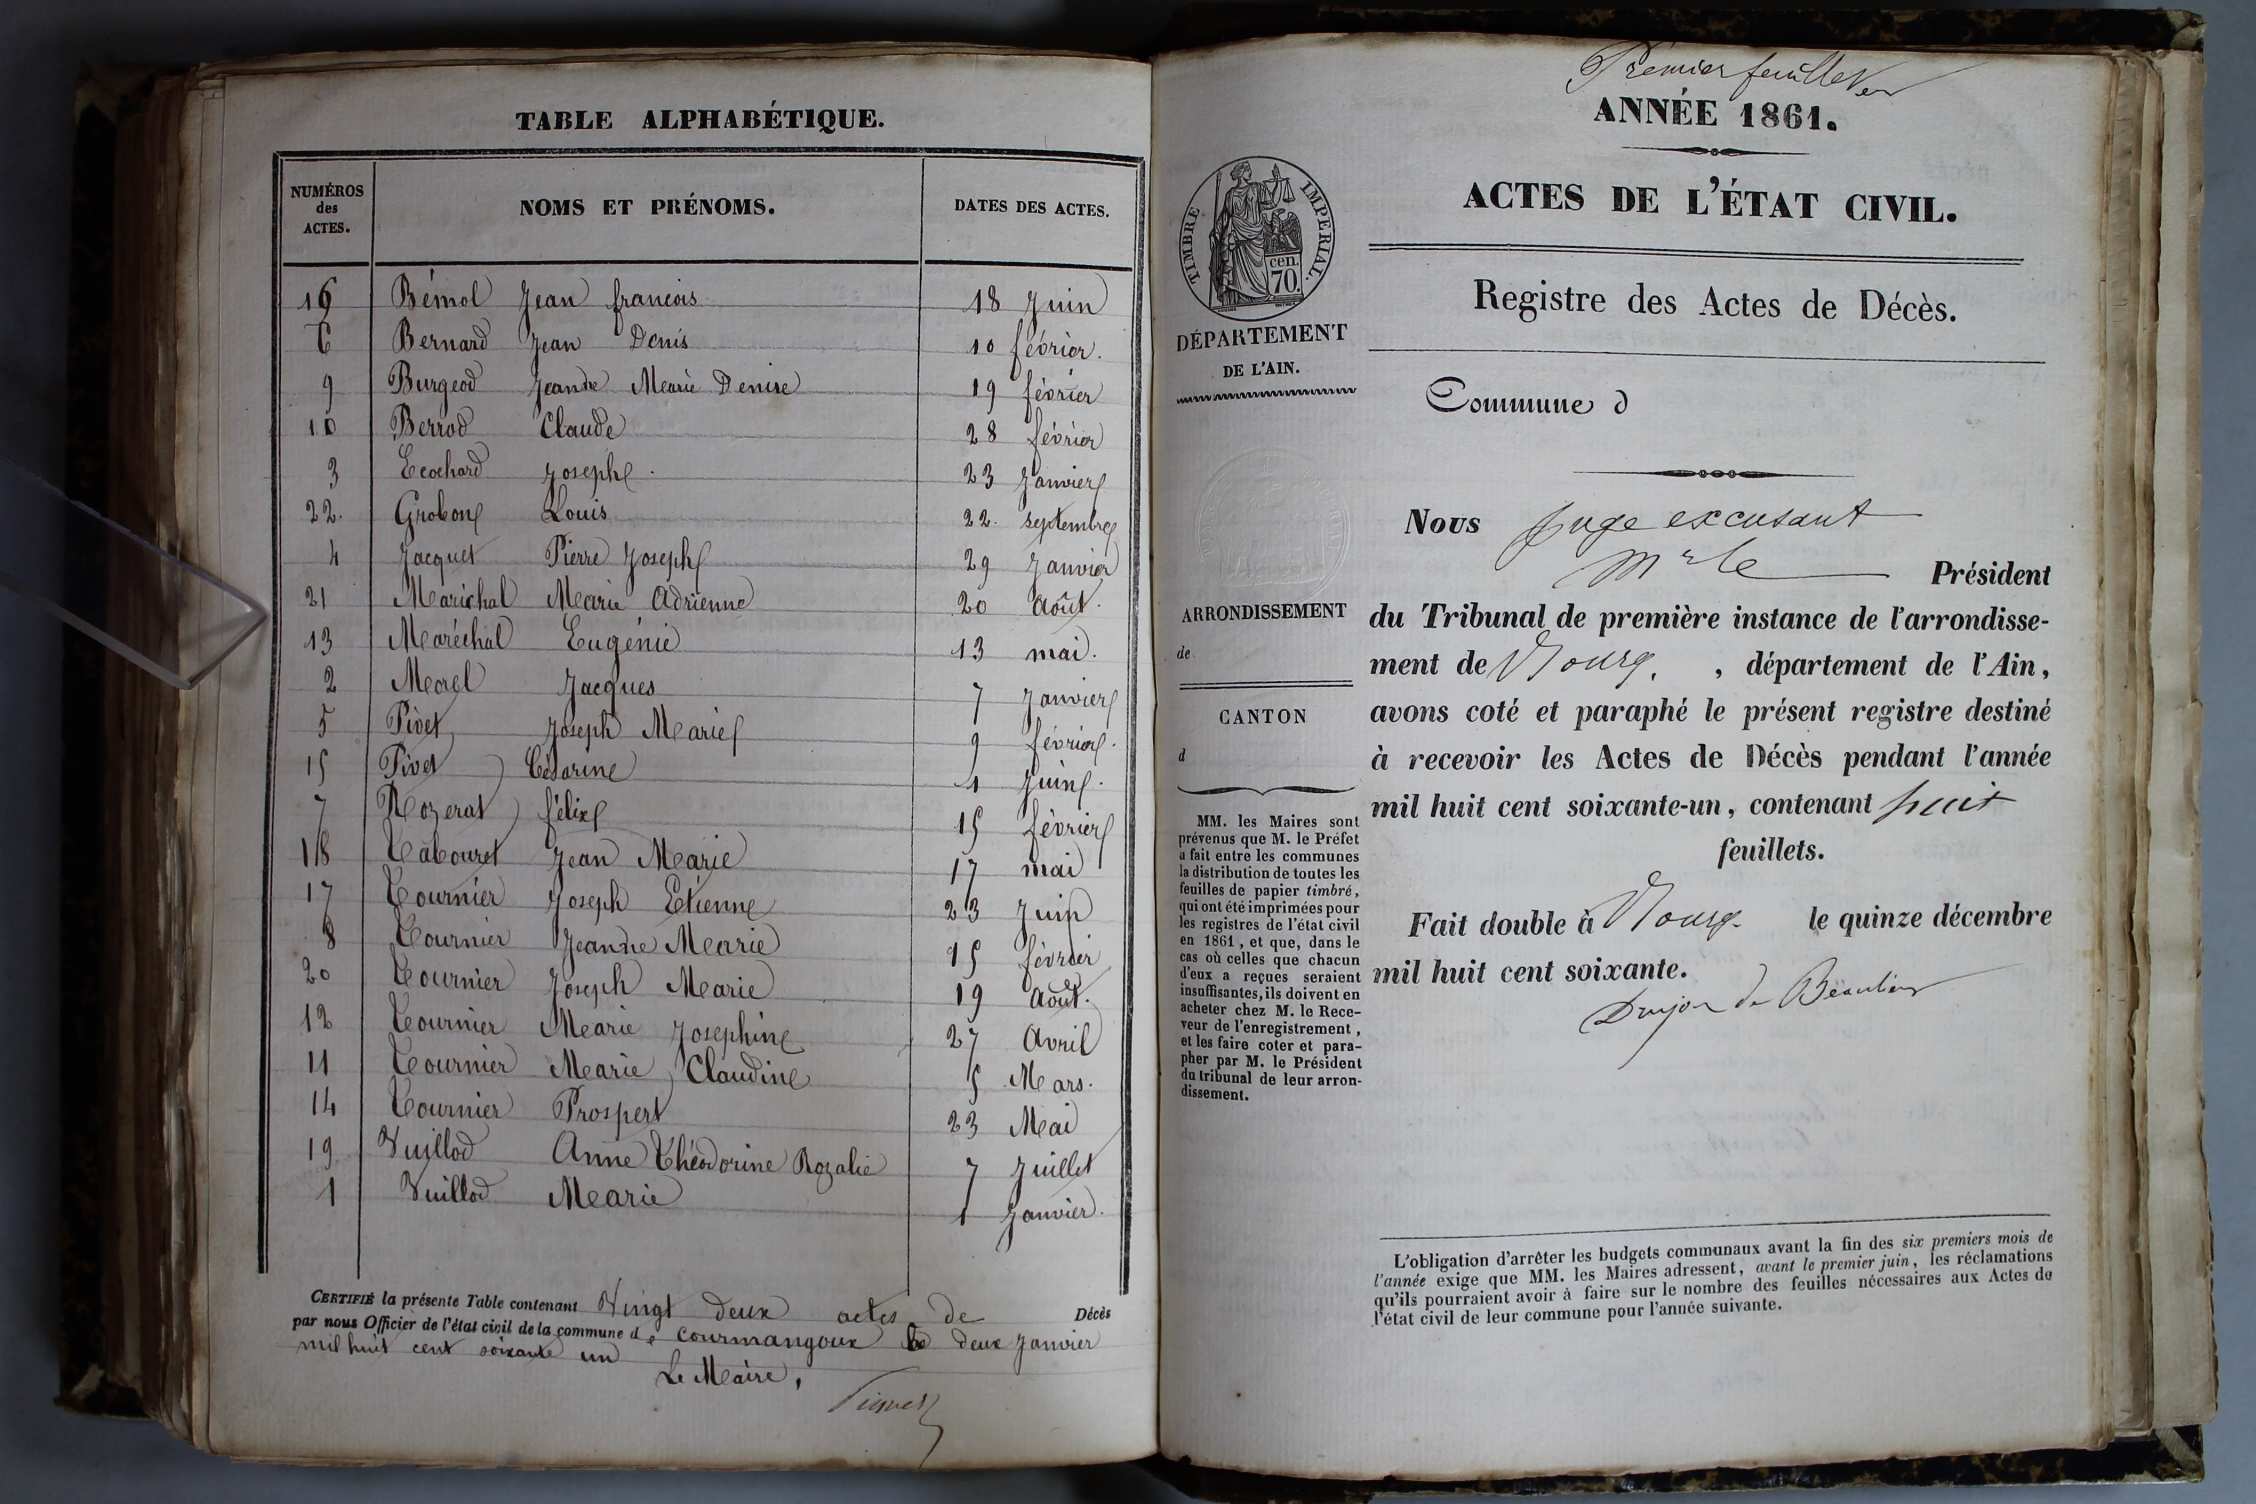 TABLE ALPHABÉTIQUE.
NUMÉROS des ACTES. NOMS ET PRÉNOMS. DATES DES ACTES.
16 Bémol Jean françois 18 Juin
6 Bernard Jean Denis 10 février.
9 Burgeod Jeanne Marie Denise 19 février
10 Berrod Claude 28 février
3 Ecochard Joseph. 23 Janvier
22. Grobon Louis 22. septembre
4 Jacquet Pierre Joseph 29 Janvier
21 Marichal Marie Adrienne 20 Août.
13 Maréchal Eugénie 13 mai.
2 Morel Jacques 7 Janvier
5 Pivet Joseph Marie 9 février.
15 Pivet Césarine 4 Juin.
7 Rozerat félix 15 février
18 Tabouret Jean Marie 17 mai
17 Tournier Joseph Etienne 23 Juin
8 Tournier Jeanne Marie 15 février
20 Tournier Joseph Marie 19 Août.
12 Tournier Marie Josephine 27 Avril
11 Tournier Marie Claudine 5 Mars.
14 Tournier Prospert 23 Mai
19 Vuillod Anne Théodorine Rozalie 7 Juillet
1 Vuillod Marie 1 Janvier.
CERTIFIÉ la présente Table contenant Vingt deux actes de Décès
par nous Officier de l'état civil de la commune de Courmangoux le deux Janvier
mil huit cent soixante un
Le Maire,
Premier feuillet
ANNÉE 1861.
ACTES DE L'ÉTAT CIVIL.
Registre des Actes de Décès.
TIMBRE IMPÉRIAL.
70. cen.
DÉPARTEMENT
DE L'AIN.
ARRONDISSEMENT
de
CANTON
d
MM. les Maires sont
prévenus que M. le Préfet
a fait entre les communes
la distribution de toutes les
feuilles de papier timbré,
qui ont été imprimées pour
les registres de l'état civil
en 1861, et que, dans le
cas où celles que chacun
d'eux a reçues seraient
insuffisantes, ils doivent en
acheter chez M. le Rece-
veur de l'enregistrement,
et les faire coter et para-
pher par M. le Président
du tribunal de leur arron-
dissement.
Commune d
Nous Juge excusant
Mr le Président
du Tribunal de première instance de l'arrondisse-
ment de Bourg. , département de l'Ain,
avons coté et paraphé le présent registre destiné
à recevoir les Actes de Décès pendant l'année
mil huit cent soixante-un, contenant huit
feuillets.
Fait double à Bourg. le quinze décembre
mil huit cent soixante.
Dujon de Beaulieu
L'obligation d'arrêter les budgets communaux avant la fin des six premiers mois de
l'année exige que MM. les Maires adressent, avant le premier juin, les réclamations
qu'ils pourraient avoir à faire sur le nombre des feuilles nécessaires aux Actes de
l'état civil de leur commune pour l'année suivante.